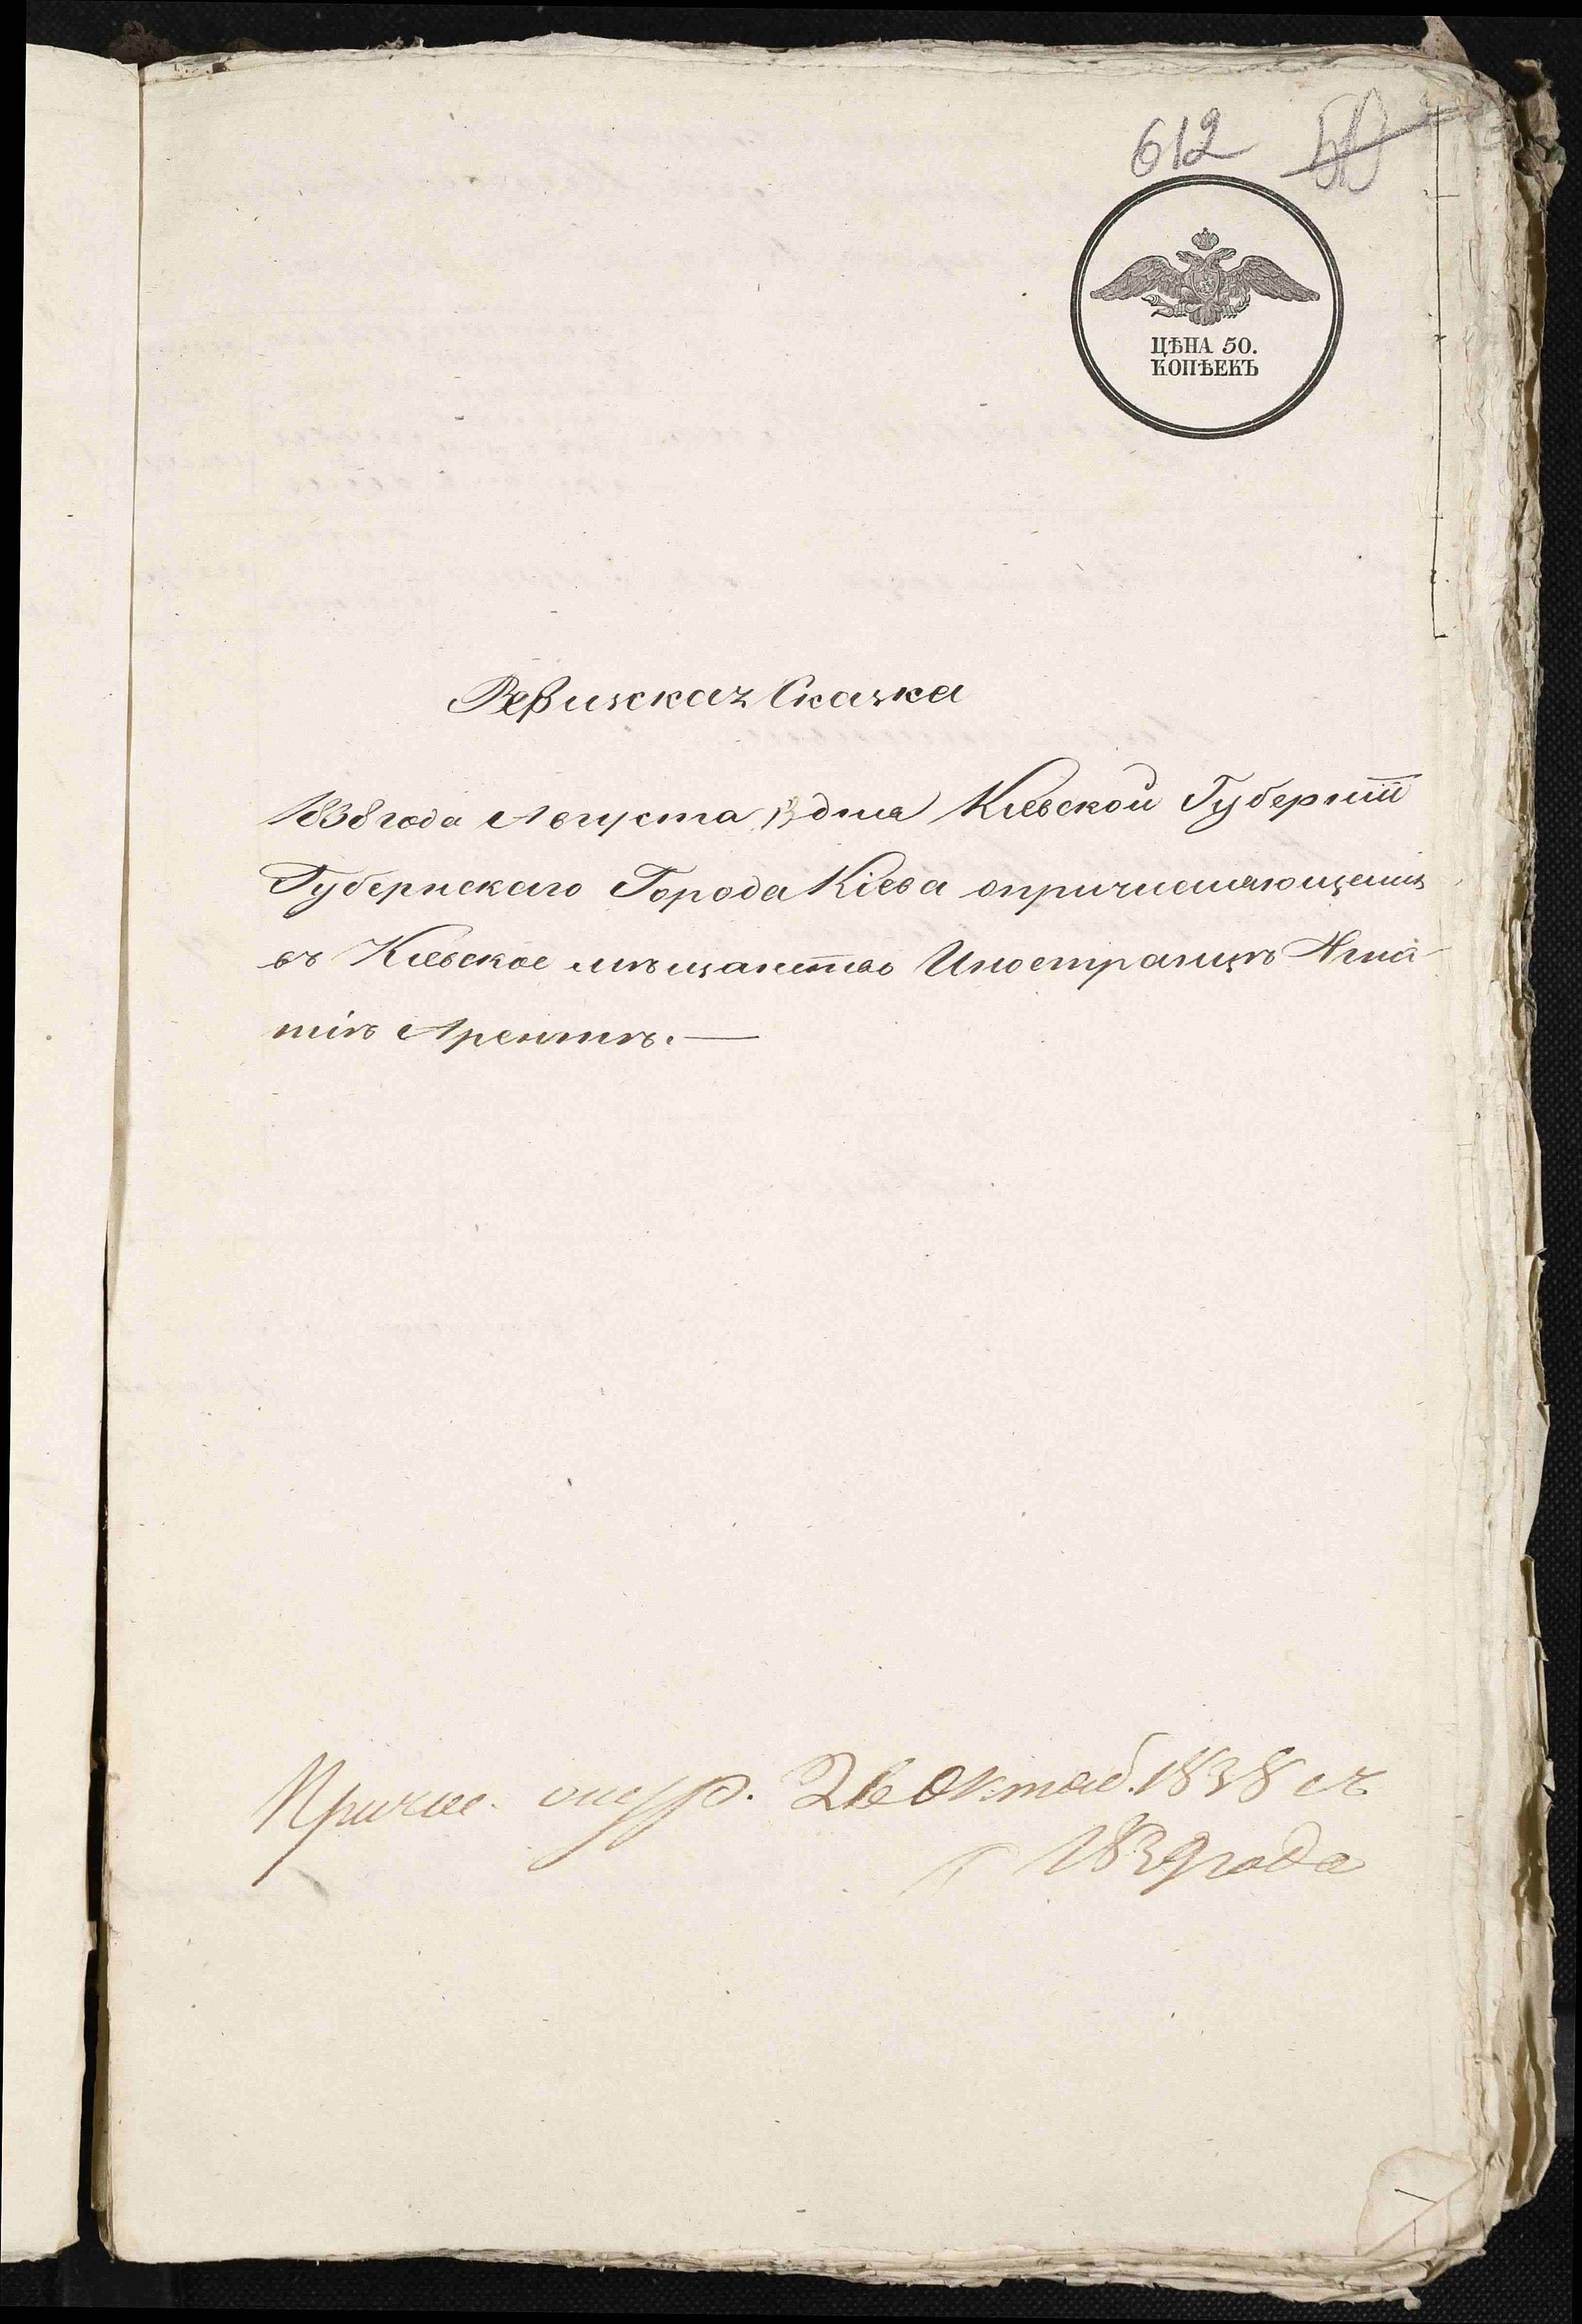 612
ЦѢНА 50.
КОПѢЕКЪ
Ревизская Сказка
1838 года Августа 13 дня Кіевской Губерніи
Губернскаго Города Кіева опричисляющемся
въ Кіевское мѣщанство Иностранцѣ Игна-
тіѣ Арентѣ.—
Причис. 26 Октяб. 1838 съ
1839 года